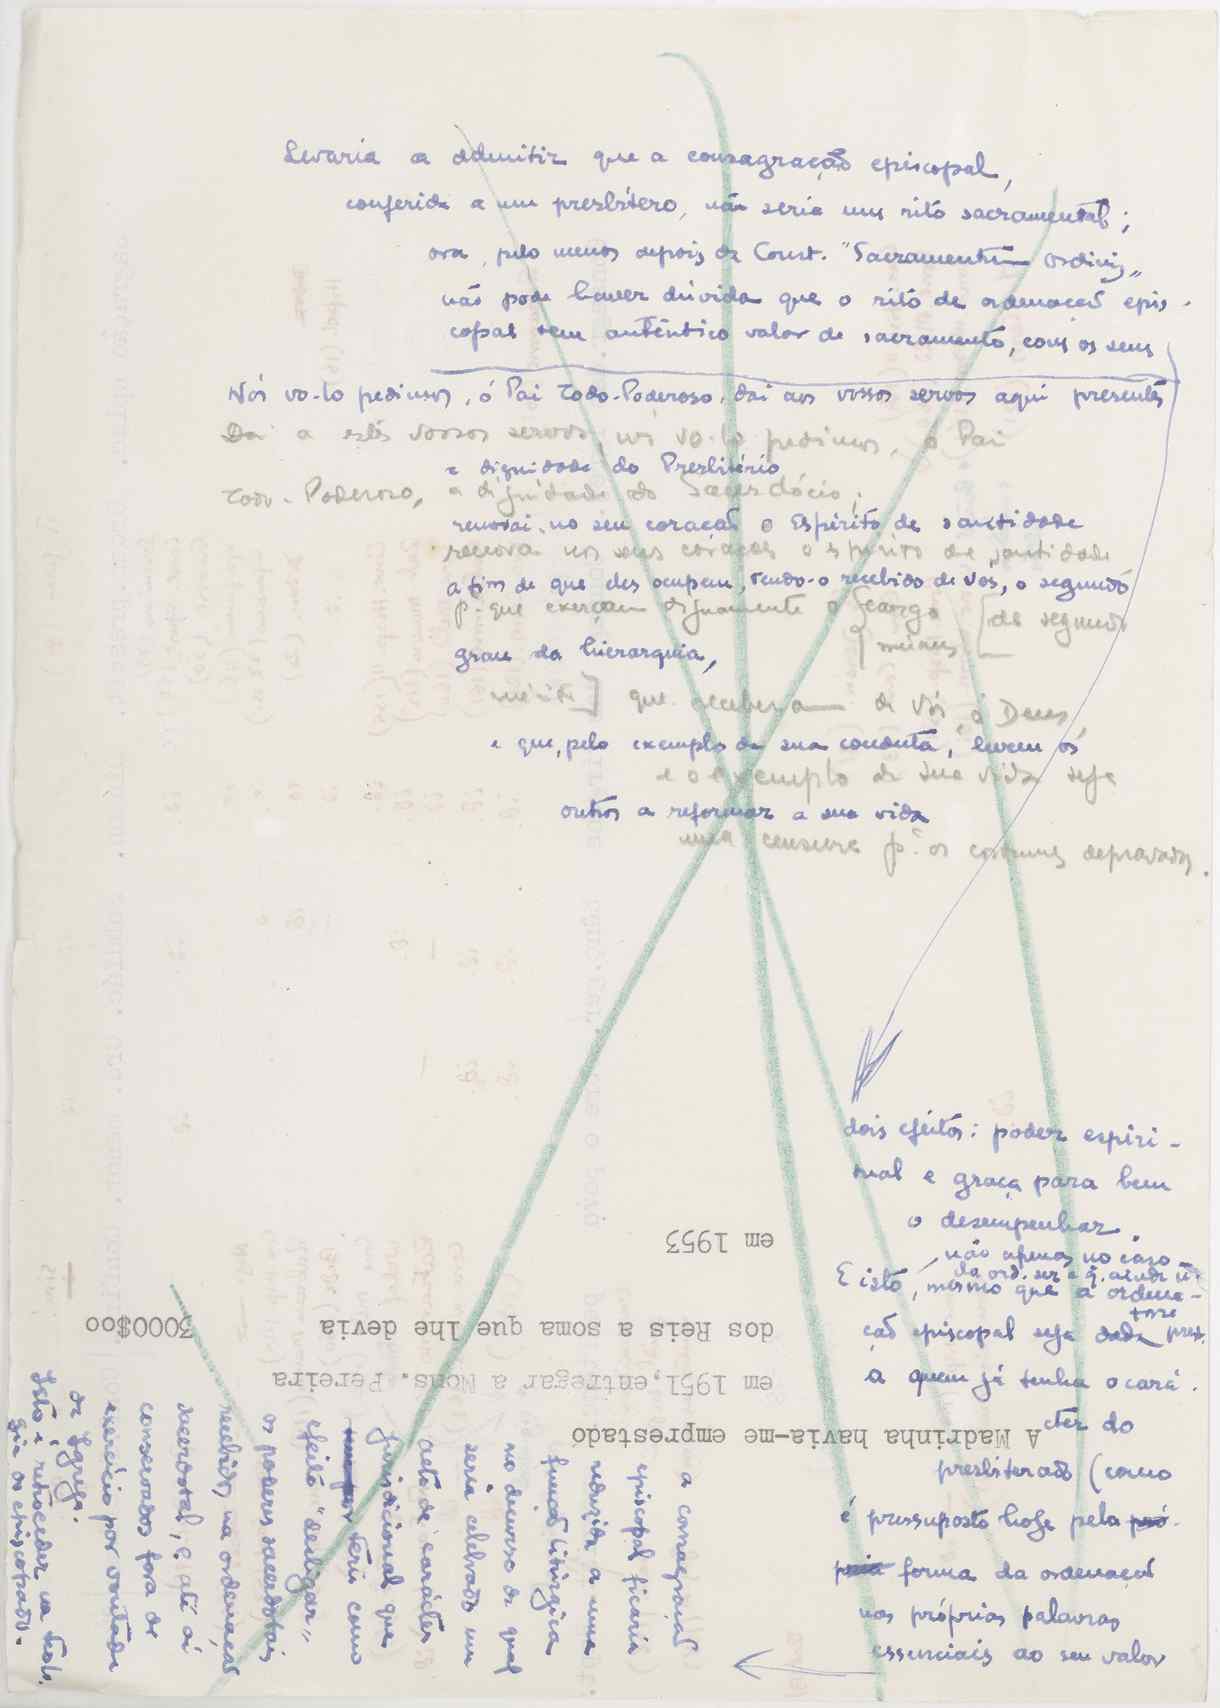 Levaria a admitir que a consagração episcopal,
conferida a um presbítero, não seria um rito sacramental;
ora, pelo menos depois da Const. "Sacramentum Ordinis"
não pode haver dúvida que o rito de ordenação epis-
copal tem autêntico valor de sacramento, com os seus
Nós vo-lo pedimos, ó Pai Todo-Poderoso, dai aos vossos servos aqui presentes
Dai a estes vossos servos, nós vo-lo pedimos, ó Pai
a dignidade do Presbitério
Todo-Poderoso, a dignidade do Sacerdócio;
renovai no seu coração o Espírito de santidade
renovai nos seus corações o espírito de santidade
a fim de que eles ocupem, tendo-o recebido de Vós, o segundo
p. que exerçam dignamente o cargo [de segundo
grau da hierarquia,
múnus
mérito] que receberam de Vós, ó Deus,
e que, pelo exemplo da sua conduta, levem os
e o exemplo da sua vida seja
outros a reformar a sua vida
uma censura pª os costumes depravados.
dois efeitos: poder espiri-
tual e graça para bem
o desempenhar.
não apenas no caso
da ord. ser
E isto, mesmo que a ordena-
ção episcopal seja dada
a quem já tenha o cará-
cter do
presbiterado (como
é pressuposto hoje pela pró-
pria forma da ordenação
nas próprias palavras
essenciais ao seu valor
a consagração
episcopal ficaria
reduzida a uma
função litúrgica
no decurso da qual
seria celebrado um
acto de carácter
jurisdicional que
teria como
efeito "desligar"
os poderes sacerdotais
recebidos na ordenação
sacerdotal, e até aí
conservados fora de
exercício por vontade
da Igreja.
Isto é retroceder na
gia do episcopado.
A Madrinha havia-me emprestado
em 1951, entregar a Mons. Pereira
dos Reis a soma que lhe devia 3000$oo
em 1953